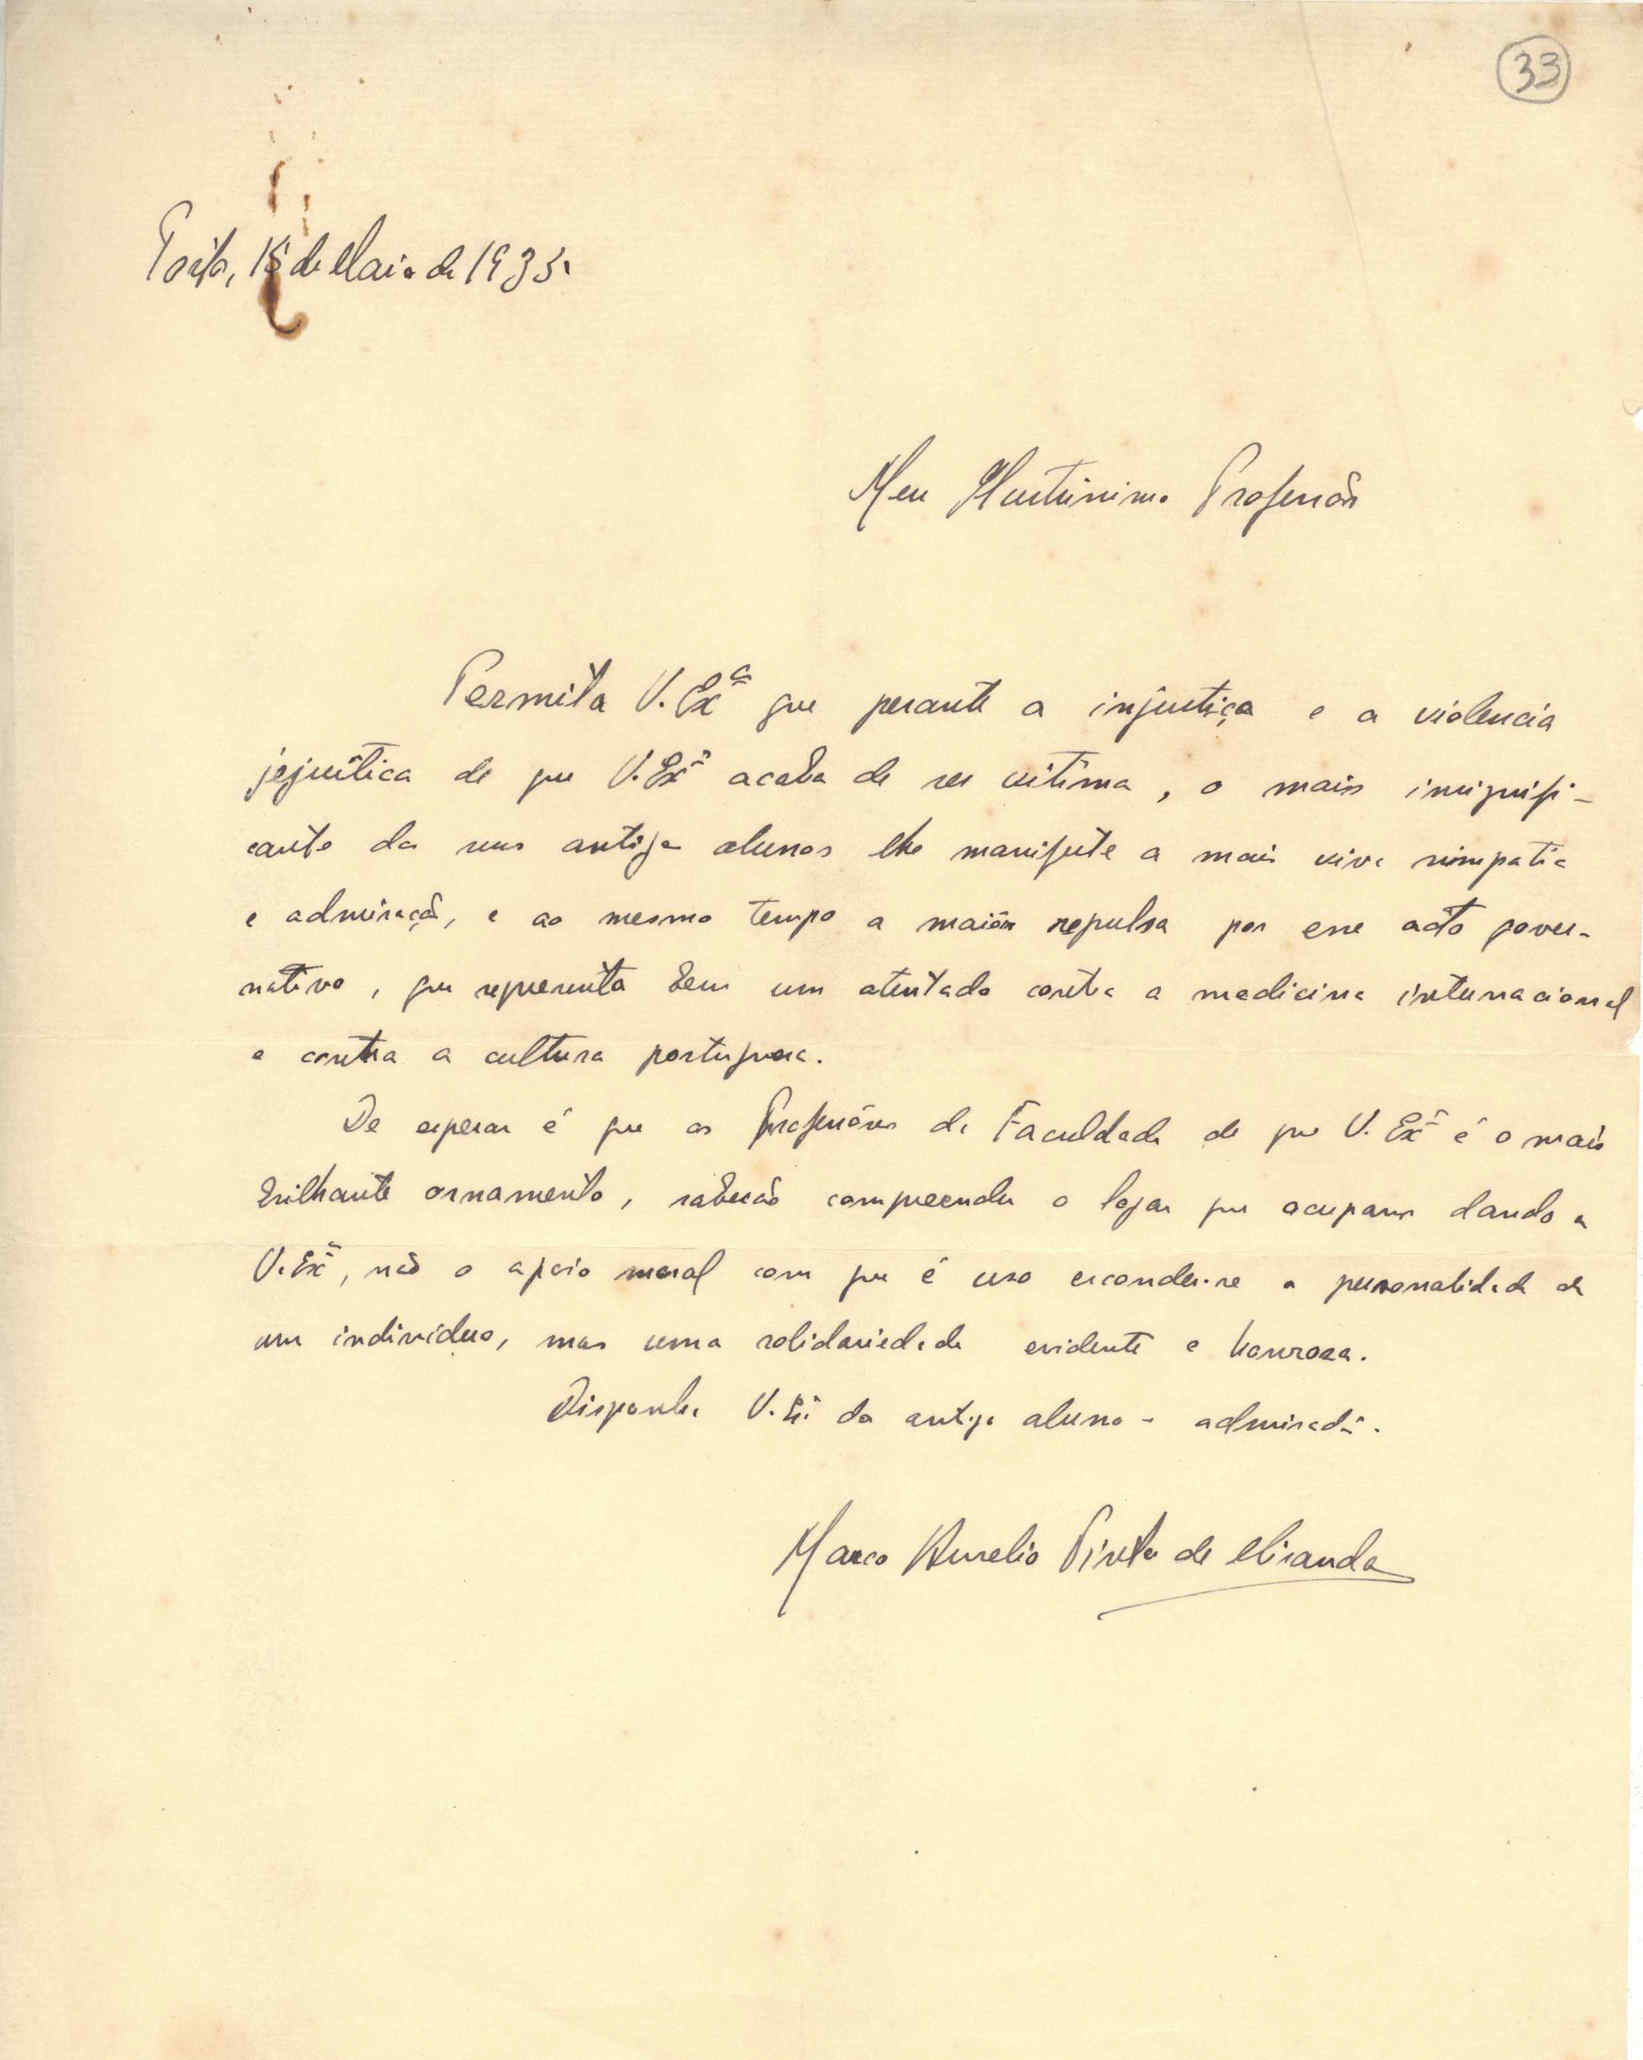 33
Porto, 15 de Maio de 1935.
Meu Ilustrissimo Professôr
Permita V. Exª que perante a injustiça e a violencia
jejuítica de que V. Exª acaba de ser vitima, o mais insignifi-
cante dos seus antigos alunos lhe manifeste a mais viva simpatia
e admiração, e ao mesmo tempo a maiôr repulsa por esse acto gover-
nativo, que representa bem um atentado contra a medicina internacional
e contra a cultura portuguesa.
De esperar é que os Professôres da Faculdade de que V. Exª é o mais
brilhante ornamento, saberão compreender o logar que ocupam dando a
V. Exª, não o apoio moral com que é uso esconder-se a personalidade de
um individuo, mas uma solidariedade evidente e honrosa.
Disponha V. Exª do antigo aluno - admiradôr.
Marco Aurelio Pinto de Miranda